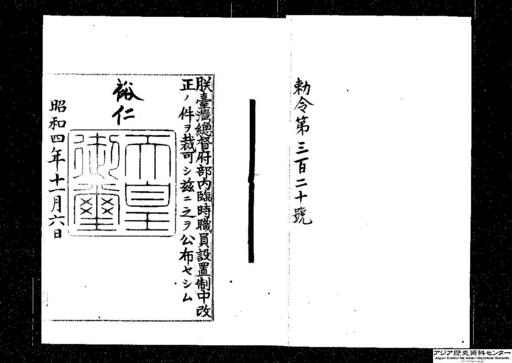 勅令第三百二十號
朕臺灣總督府部内臨時職員設置制中改
正ノ件ヲ裁可シ茲ニ之ヲ公布セシム
裕仁
天皇
御璽
昭和四年十一月六日
アジア歴史資料センター
Japan Center for Asian Historical Records